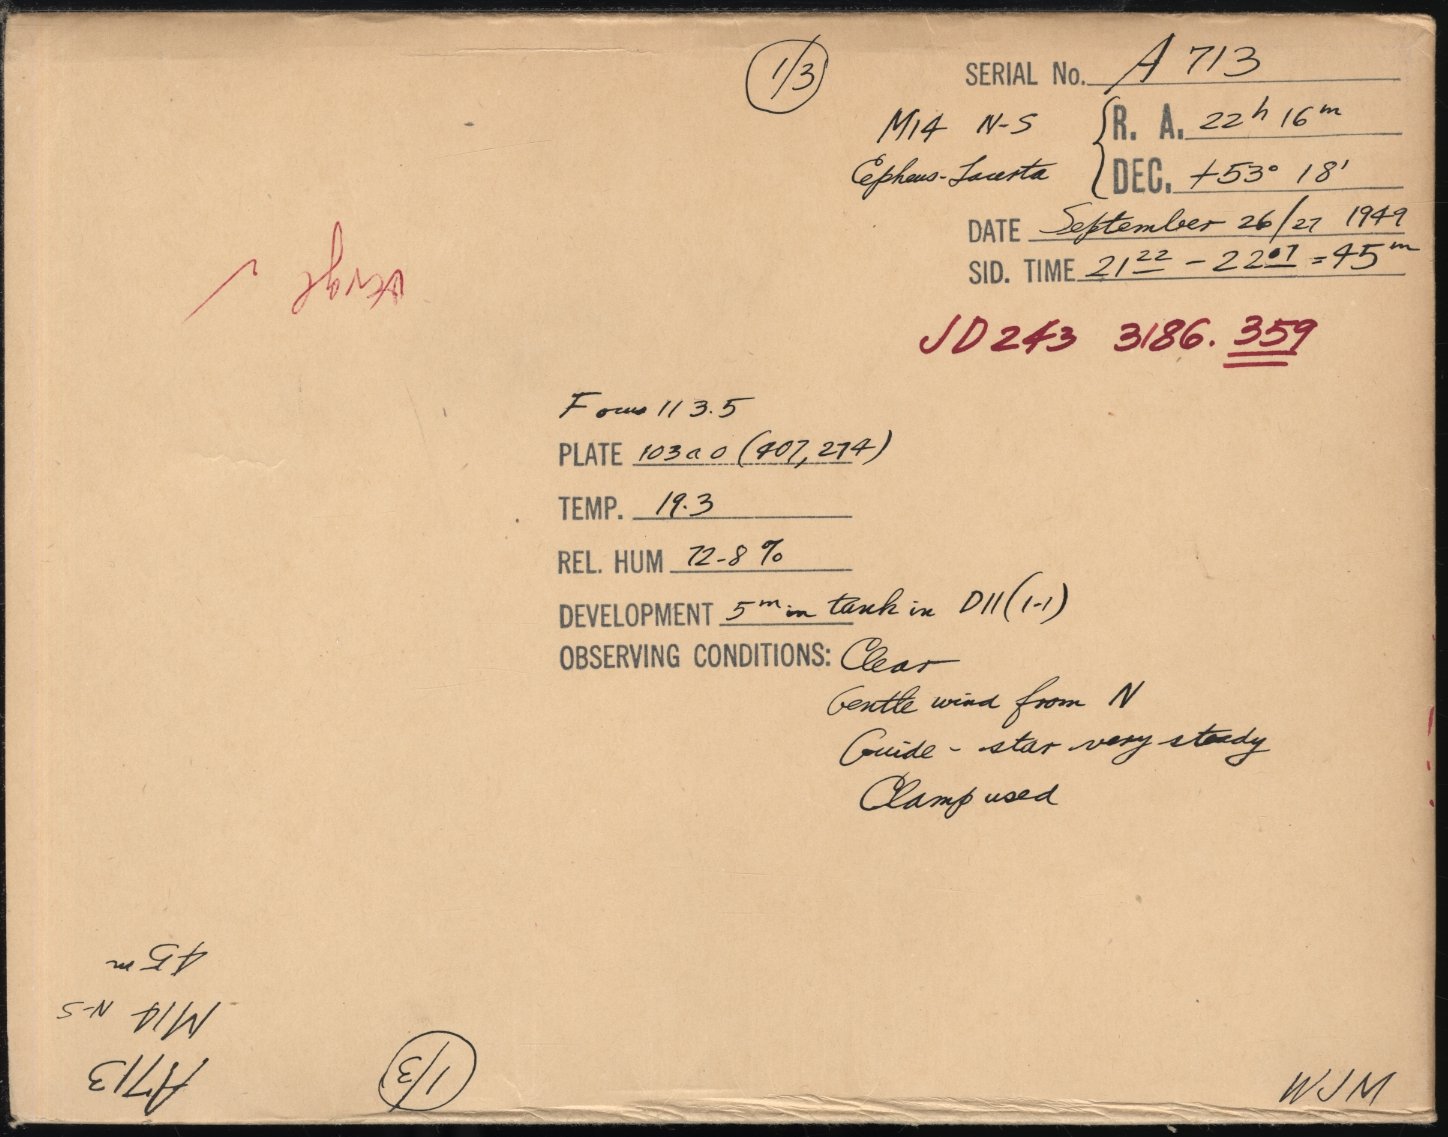 1/3
SERIAL No. A 713
M14 N-S
R. A. 22h 16m
Cepheus-Lacerta
DEC. +53° 18'
DATE September 26/27 1949
SID. TIME 21 22 - 22 07 = 45m
JD 243 3186.359
Focus 113.5
PLATE 103a O (407, 274)
TEMP. 19.3
REL. HUM 72-8 %
DEVELOPMENT 5m in tank in D11 (1-1)
OBSERVING CONDITIONS: Clear
Gentle wind from N
Guide - star very steady
Clamp used
A713
M14 N-S
45m
1/3
WJM